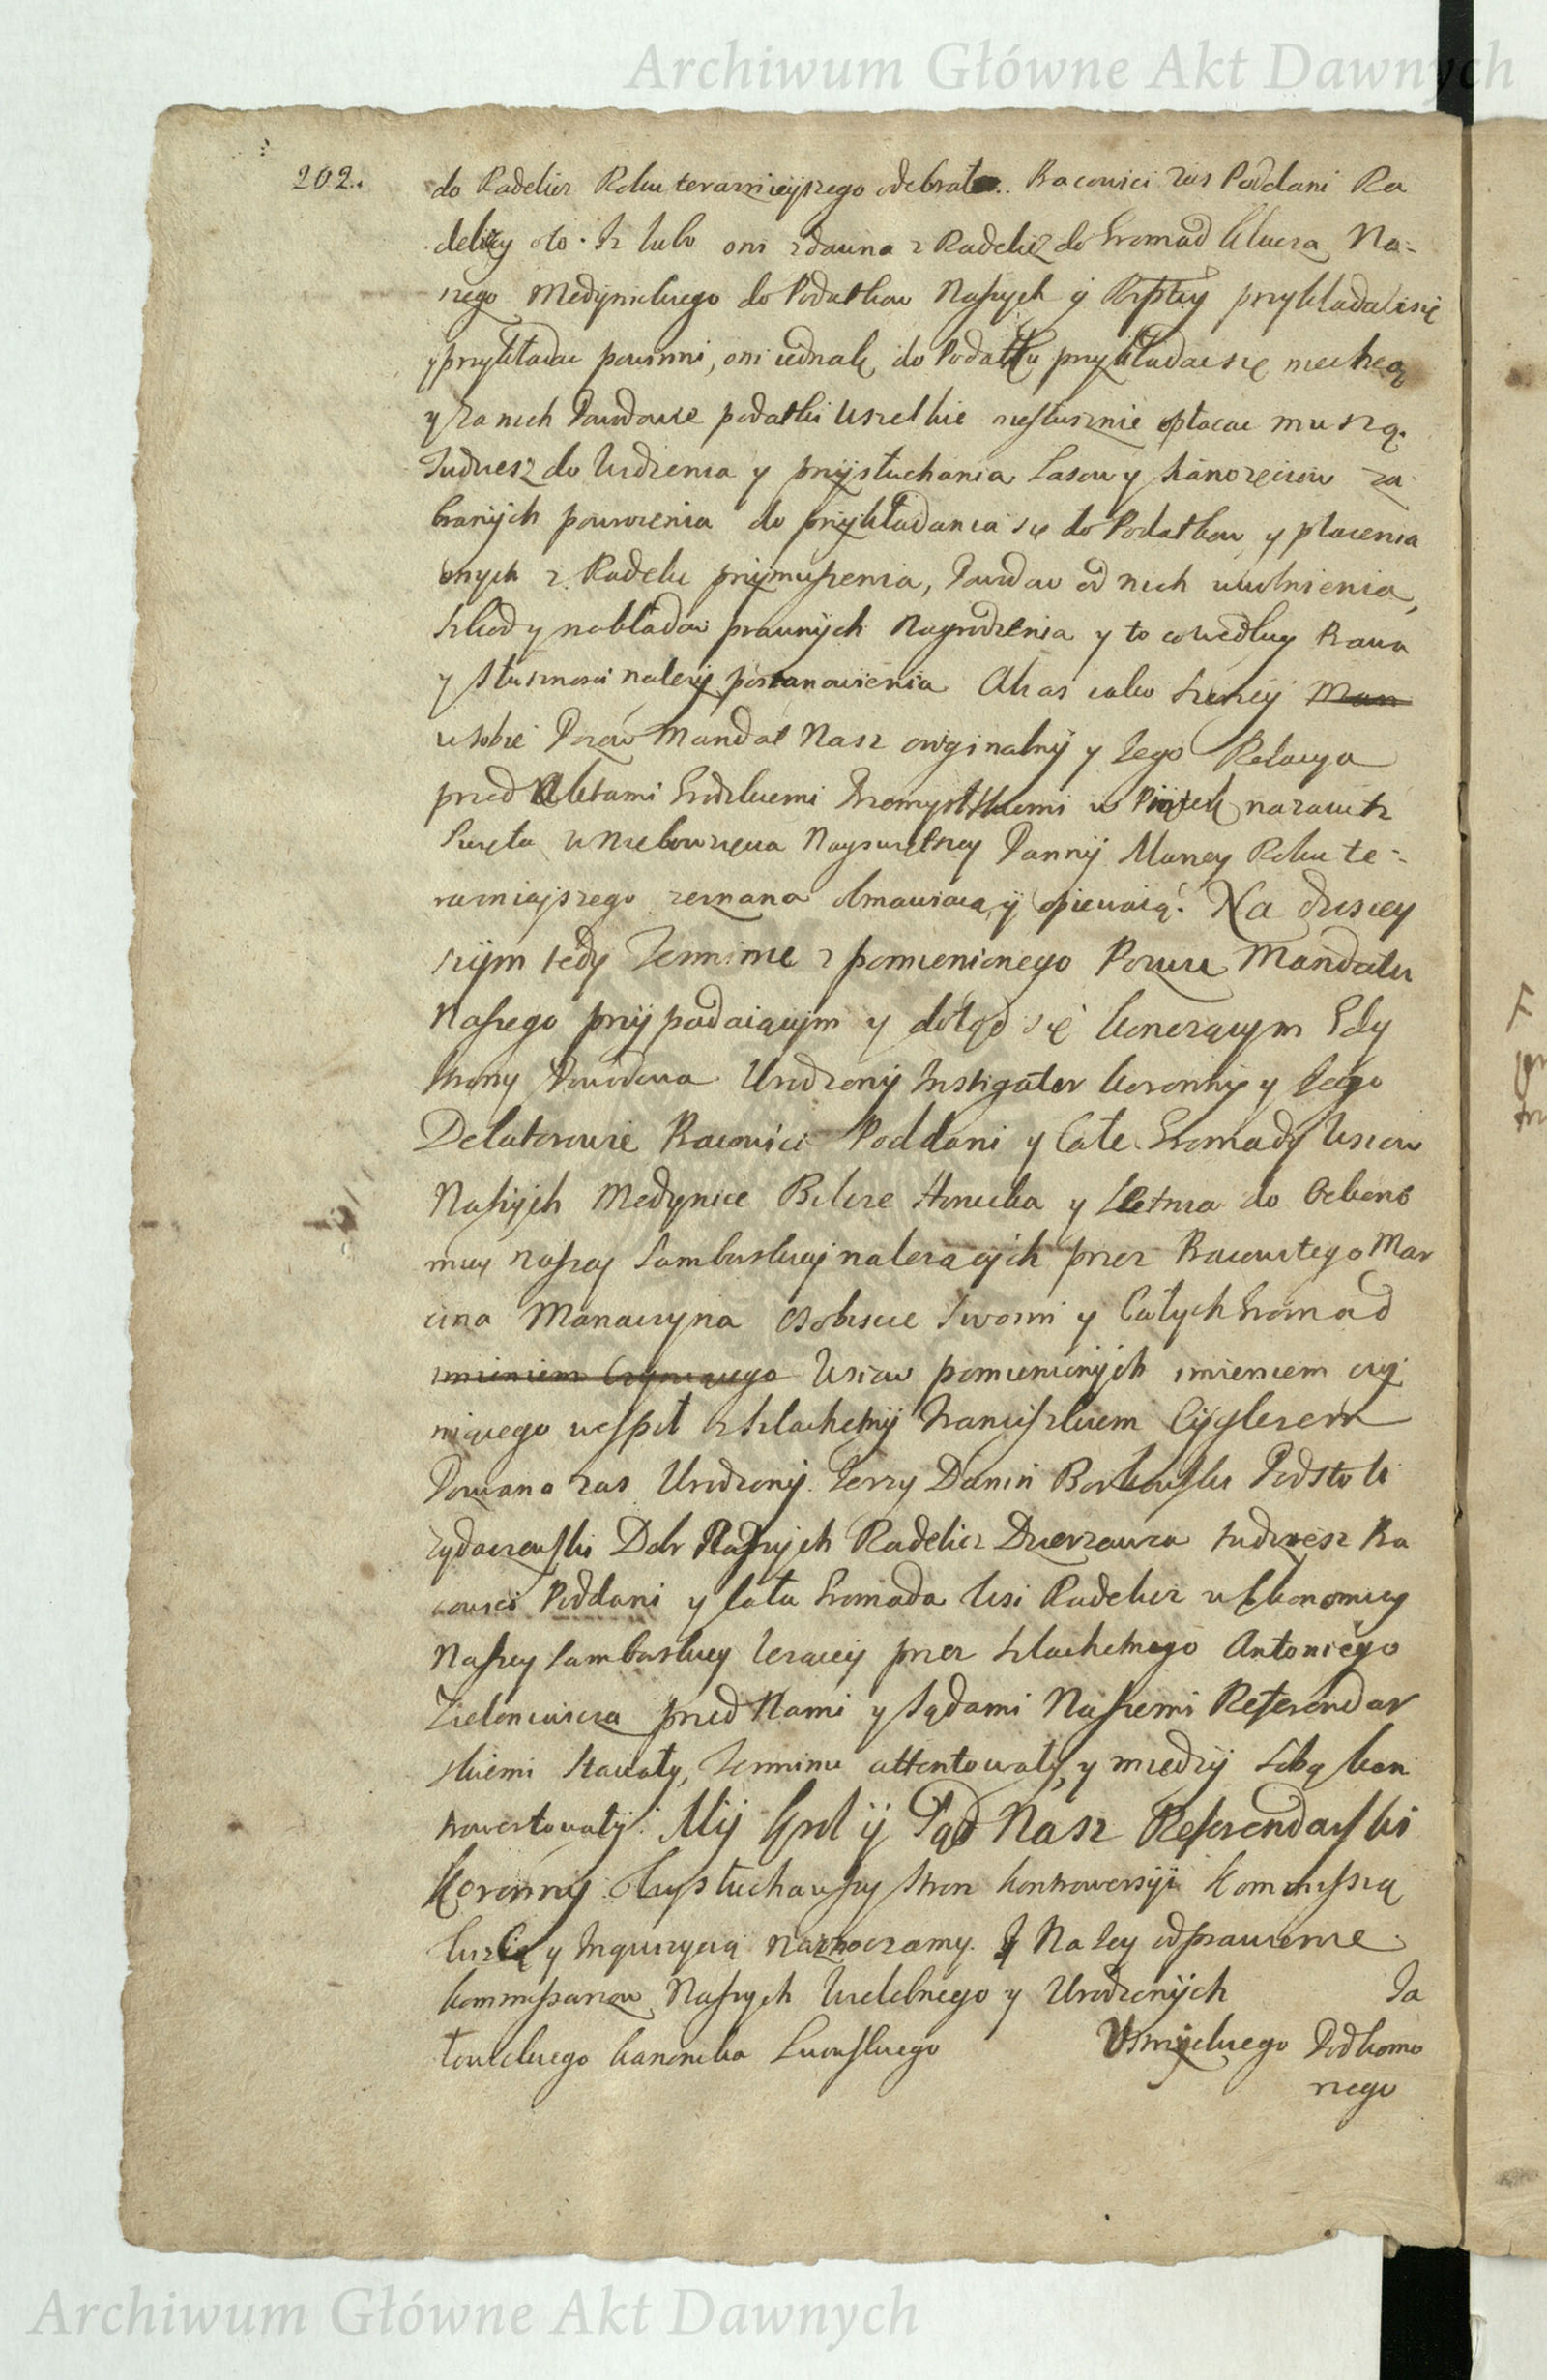 Archiwum Główne Akt Dawnych
202.
do Radelicz Roku teraznieyszego odebrał.. Pracowici zas Poddani Ra
deliccy oto. Iz lubo oni zdawna z Radelicz do Gromad klucza Na-
szego Medynickiego do Podatkow Naszych y Rzptey przykładali się
y przykładac powinni, oni iednak do Podatku przykładac się niechcą
y za nich Powodowie podatki wszelkie niesłusznie opłacac muszą.
Tudziesz do widzenia y przysłuchania Lasow y Sianozęciow za
branych powrocenia do przykładania się do Podatkow y płacenia
onych z Radelic przymuszenia, Powodow od nich uwolnienia,
Szkod y nakładow prawnych Nagrodzenia y to co według Prawa
y słusznosci nalezy postanowienia Akas iako szerzey Man
w sobie Pozew Mandat Nasz originalny y Jego Relacya
przed Aktami Grodzkiemi Przemyslskiemi w Piątek nazaiutrz
Swięta Wniebowzięcia Nayswiętszey Panny Maryey Roku te-
raznieyszego zeznana obmawiaią y opiewaią. Na dzisiey
szym tedy Terminie z pomienionego Pozwu Mandatu
Naszego przypadaiącym y dotąd się koncząym Gdy
strony Powodowa Urodzony Instigator koronny y Jego
Delatorowie Pracowici Poddani y Całe Gromady Wsiow
Naszych Medynice Bilcze Horucka y Letnia do Oekono
miey Naszey Samborskiey nalezących przez Pracowitego Mar
cina Manaczyna osobiscie swoim y Całych Gromad
imieniem Czyniącego Wsiow pomienionych imieniem czy
niącego wespoł z Szlachetnym Franciszkiem Cyglerem
Pozwana zas Urodzony Jerzy Danin Borkowski Podstoli
Zydaczewski Dobr Naszych Radelicz Dzierzawca tudziesz Pra
cowici Poddani y Cała Gromada Wsi Radelicz w Ekonomiey
Naszey Samborskiey lezącey przez Szlachetnego Antoniego
Zieloniewicza przed Nami y Sądami Naszemi Referendar
skiemi stawały, Terminu attentowały y między sobą kon
trowertowały. My Krol y Sąd Nasz Referendarski
Koronny Wysłuchawszy stron kontrowersyi Kommissią
y Inquizycią naznaczamy. Na Jey odprawienie
kommissarzow Naszych Wielebnego y Urodzonych Ja
towickiego kanonika Lwowskiego Ustrzyckiego Podkomo
rzego
Archiwum Główne Akt Dawnych